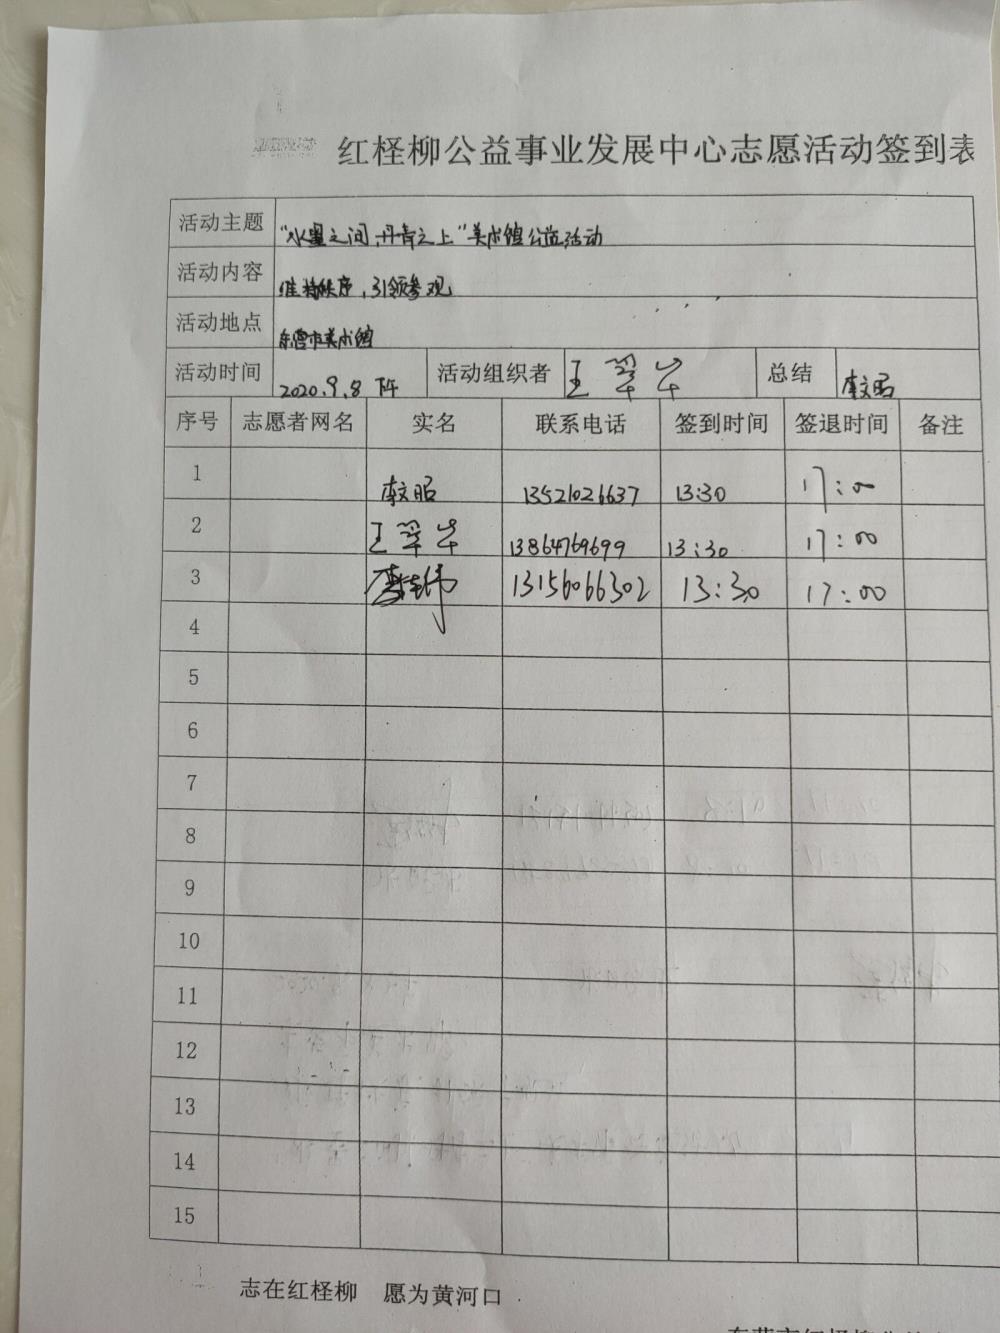 红柽柳公益事业发展中心志愿活动签到表
活动主题 “水墨之间,丹青之上”美术馆公益活动
活动内容 维持秩序,引领参观
活动地点 东营市美术馆
活动时间 2020.9.8 下午 活动组织者 王翠华 总结 李文昭
序号 志愿者网名 实名 联系电话 签到时间 签退时间 备注
1 李文昭 13521026637 13:30 17:00
2 王翠华 13864769699 13:30 17:00
3 13156066302 13:30 17:00
4
5
6
7
8
9
10
11
12
13
14
15
志在红柽柳 愿为黄河口